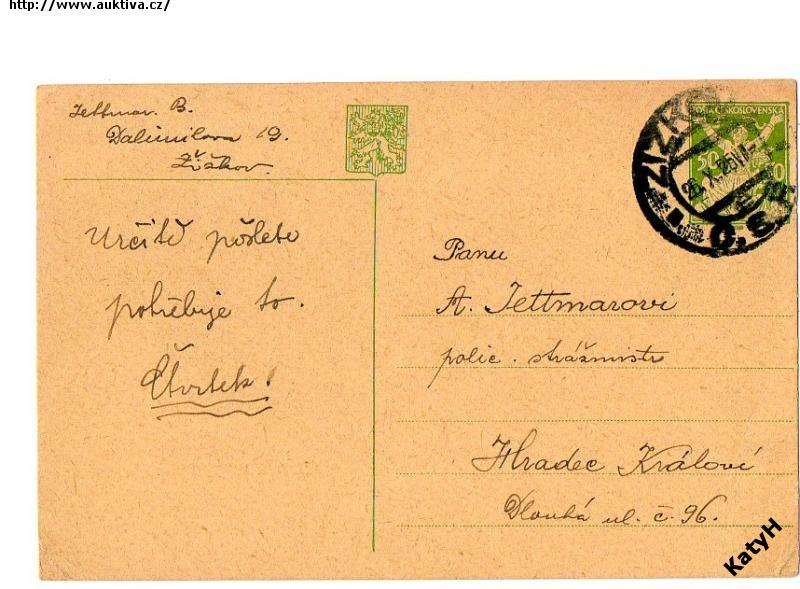 http://www.auktiva.cz/
Jettmar. B.
Dalimilova 19.
Žižkov.
Určitě pošlete
potřebuje to.
Čtvrtek!
POŠTA ČESKOSLOVENSKA
50
ŽIŽK
25.X.25
Č.S.
Panu
A. Jettmarovi
polic. strážmistr
Hradec Králové
Dlouhá ul. č. 96.
KatyH